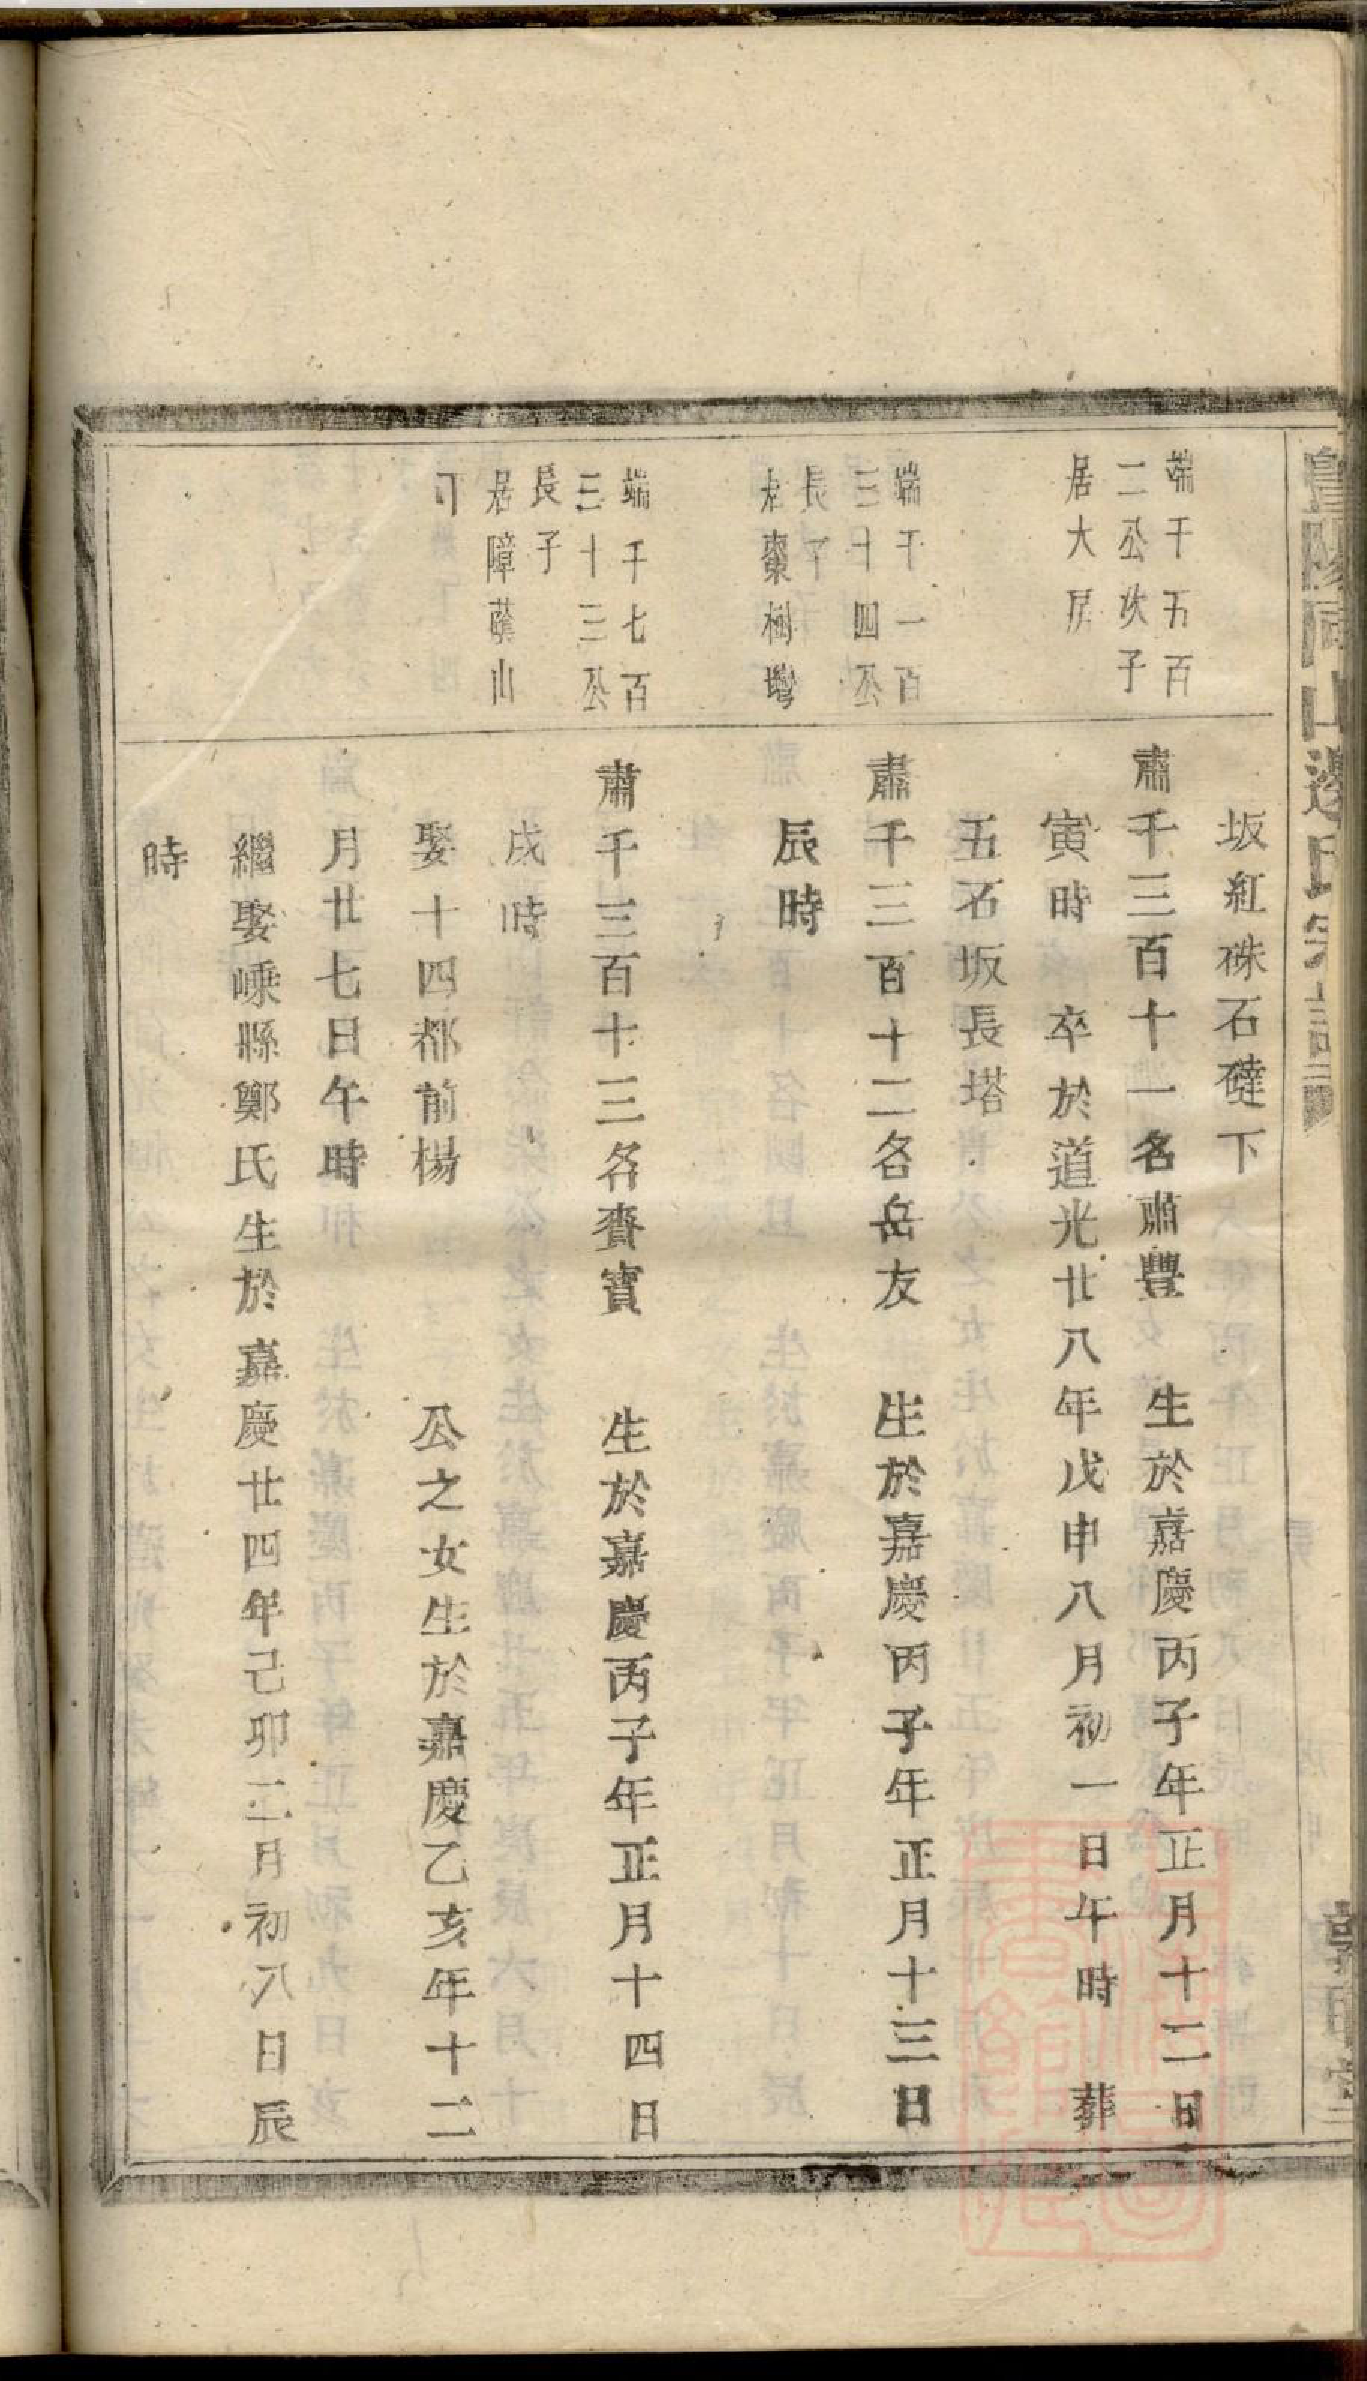 暨陽同山邊氏宗譜
坂紅硃石礅下
端千五百
二公次子
居大房
肅千三百十一名肅豐 生於嘉慶丙子年正月十二日
寅時 卒於道光廿八年戊申八月初一日午時 葬
五石坂長塔
端千一百
三十四公
長子
居棗樹灣
肅千三百十二名岳友 生於嘉慶丙子年正月十三日
辰時
端千七百
三十三公
長子
居障蘂山
下
肅千三百十三名賚寳 生於嘉慶丙子年正月十四日
戌時
娶十四都前楊 公之女生於嘉慶乙亥年十二
月廿七日午時
繼娶嵊縣鄭氏生於嘉慶廿四年己卯二月初八日辰
時